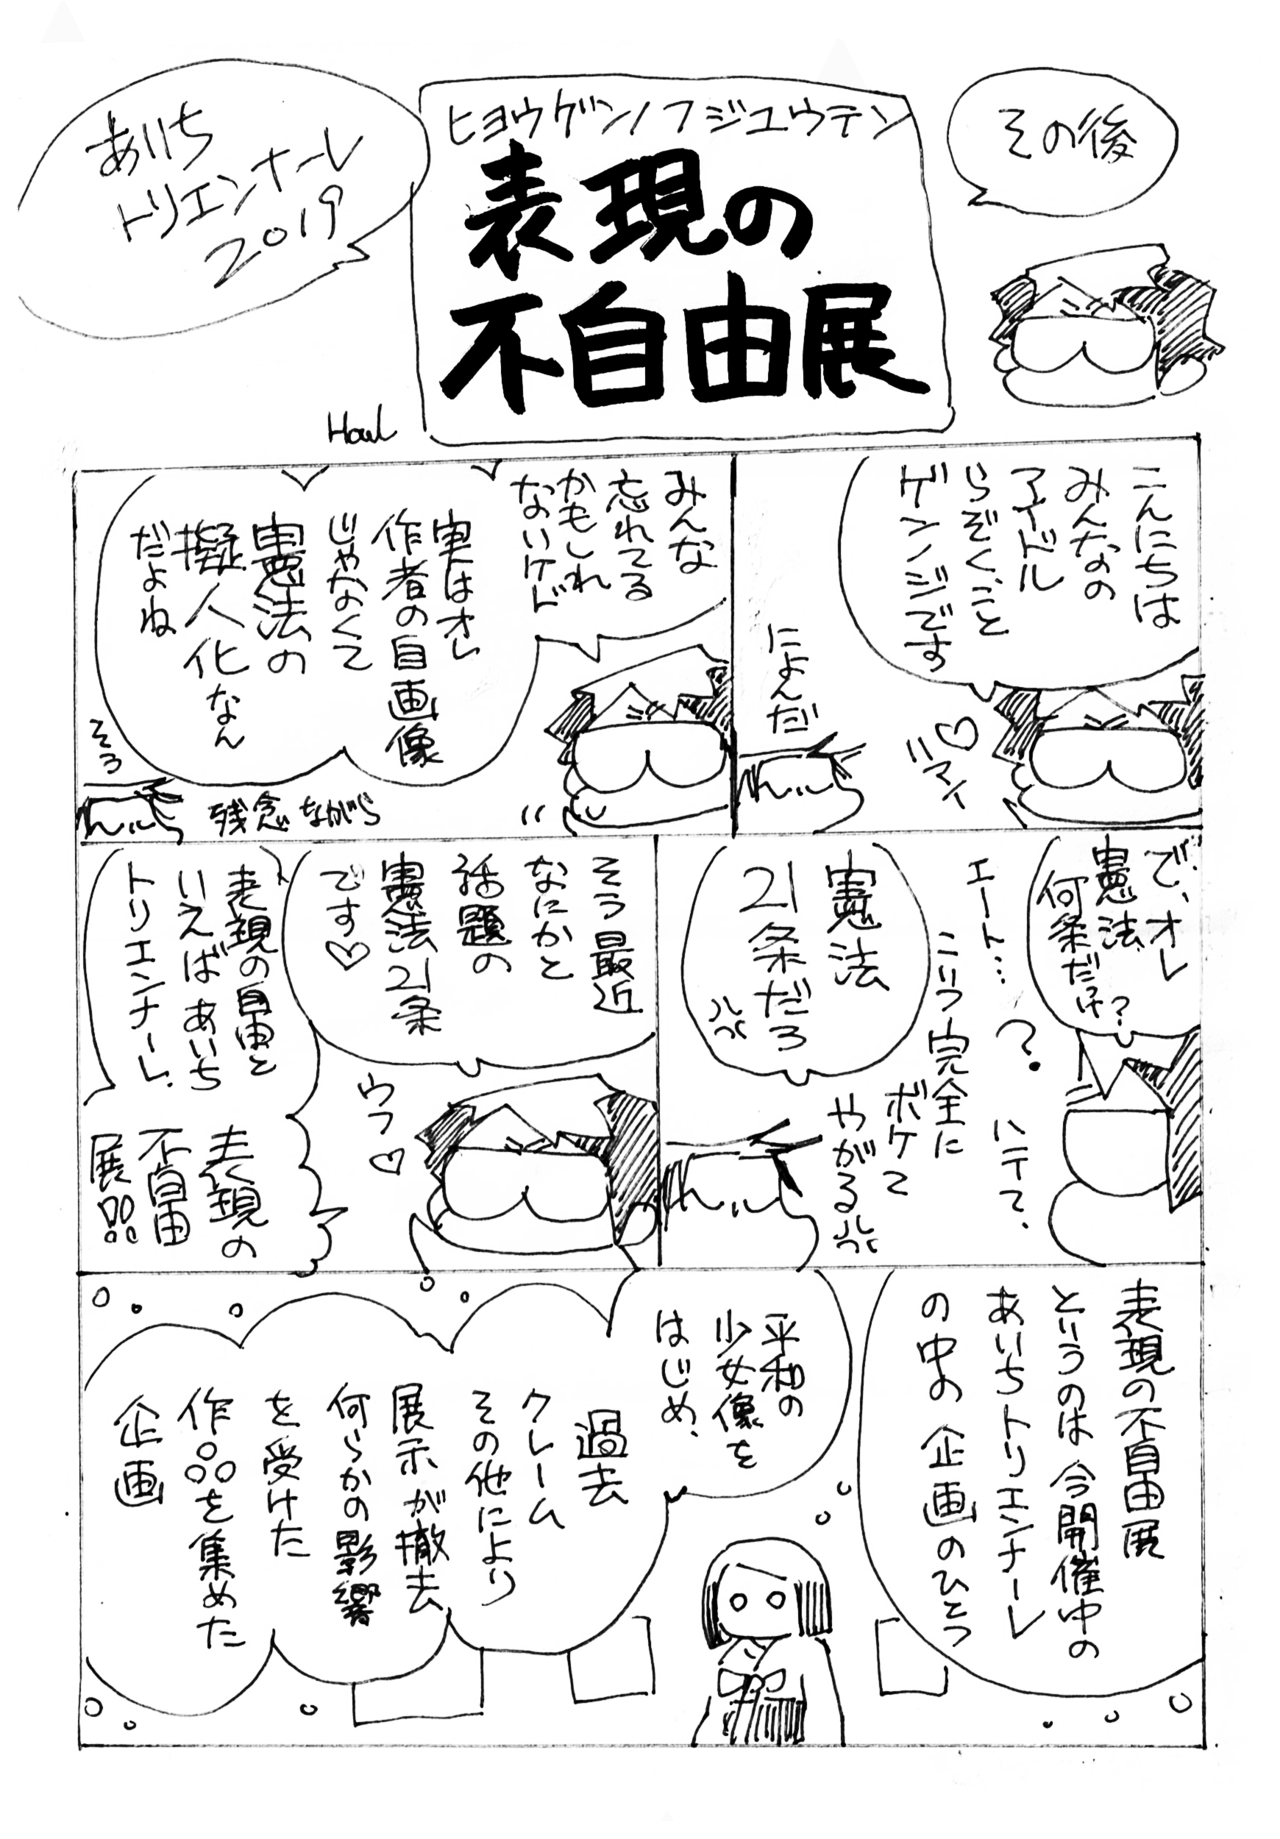 その後
ヒヨウゲンノフジユウテン
表現の
不自由展
あいち
トリエンナーレ
2019
Howl
こんにちは
みんなの
アイドル
らぞくこと
ゲンジです
ハマイ♡
にょんだ
みんな
忘れてる
かもしれ
ないけど
実はオレ
作者の自画像
じゃなくて
憲法の
擬人化なん
だよね
そろ
残念ながら
で、オレ
憲法
何条だっけ?
エート…?
ハテて、
こいつ完全に
ボケて
やがる
憲法
21条だろ
そう最近
なにかと
話題の
憲法21条
です♡
ウフ♡
表現の自由と
いえばあいち
トリエンナーレ、
表現の
不自由
展!!
表現の不自由展
というのは今開催中の
あいちトリエンナーレ
の中の企画のひとつ
平和の
少女像を
はじめ、
過去
クレーム
その他により
展示が撤去
何らかの影響
を受けた
作品を集めた
企画